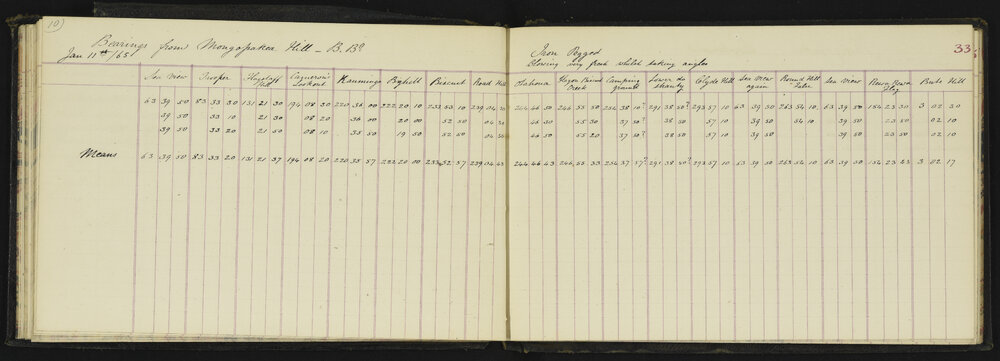 10)
Bearings from Mongopakea Hill – B. Bd
Jan 11th/65
Iron Pegged
Blowing very fresh whilst taking angles
33
Sea View Trooper Flagstaff Hill Cameron's Lookout Ryhill Biscuit Road Hill Camping ground Lower do shanty Clyde Hill Sea View again Round Hill False Sea View Flag Hill
63 39 50 83 33 30 131 21 30 194 08 30 220 36 00 222 20 10 233 53 10 239 04 30 244 46 50 246 55 50 256 38 10? 291 38 50? 293 57 10 63 39 50 263 54 10 63 39 50 154 23 30 3 02 30
39 50 33 10 21 30 08 20 36 00 20 00 52 50 04 30 46 30 55 30 37 50? 38 50 57 10 39 50 54 10 39 50 23 50 02 10
39 50 33 20 21 50 08 10 35 50 19 50 52 50 04 50 46 50 55 20 37 50? 38 50 57 10 39 50 39 50 23 50 02 10
Means 63 39 50 83 33 20 131 21 37 194 08 20 220 35 57 222 20 00 233 52 57 239 04 43 244 46 43 246 55 33 256 37 57? 291 38 50? 293 57 10 63 39 50 263 54 10 63 39 50 154 23 43 3 02 17